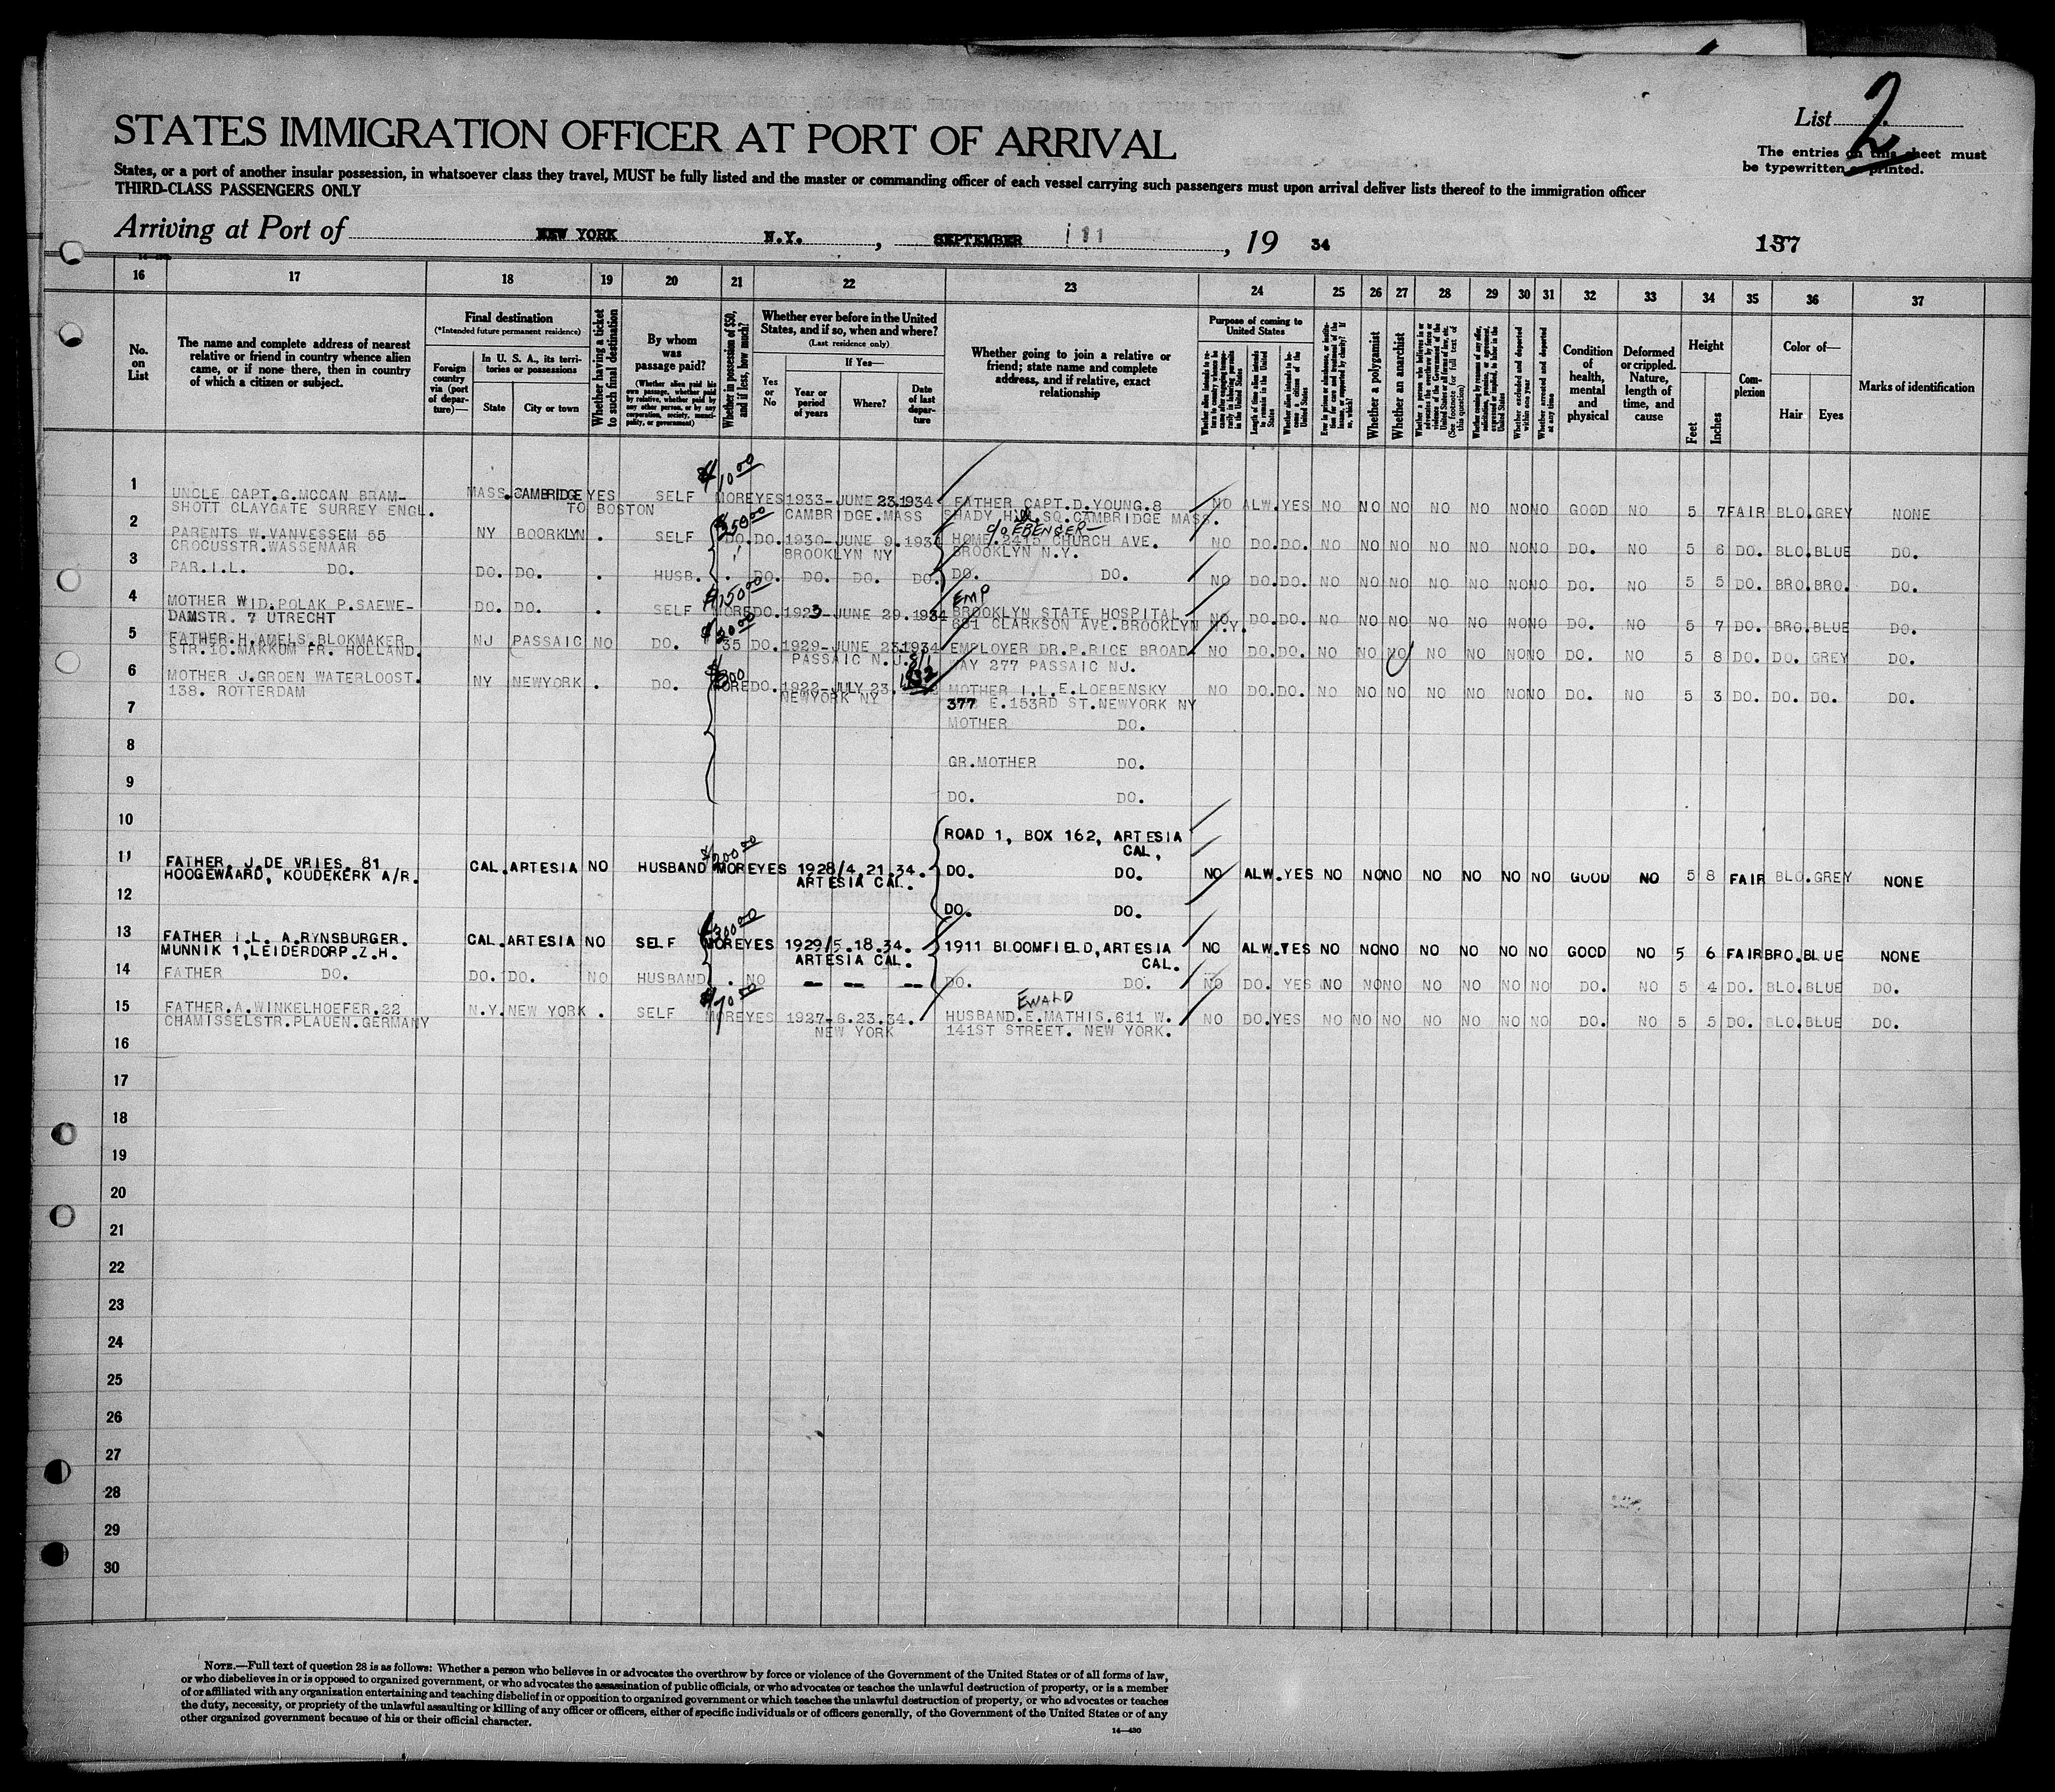 STATES IMMIGRATION OFFICER AT PORT OF ARRIVAL
List 2
The entries on this sheet must
be typewritten or printed.
States, or a port of another insular possession, in whatsoever class they travel, MUST be fully listed and the master or commanding officer of each vessel carrying such passengers must upon arrival deliver lists thereof to the immigration officer
THIRD-CLASS PASSENGERS ONLY
Arriving at Port of NEW YORK N.Y., SEPTEMBER 19 34
137
16 17 18 19 20 21 22 23 24 25 26 27 28 29 30 31 32 33 34 35 36 37
No.
on
List
The name and complete address of nearest
relative or friend in country whence alien
came, or if none there, then in country
of which a citizen or subject.
Final destination
(*Intended future permanent residence)
Foreign
country
via (port
of depar-
ture)—
In U. S. A., its terri-
tories or possessions
State
City or town
Whether having a ticket
to such final destination
By whom
was
passage paid?
(Whether alien paid his
own passage, whether paid
by relative, whether paid by
any other person, or by any
corporation, society, munici-
pality, or government)
Whether in possession of $50,
and if less, how much?
Whether ever before in the United
States, and if so, when and where?
(Last residence only)
Yes
or
No
If Yes—
Year or
period
of years
Where?
Date
of last
depar-
ture
Whether going to join a relative or
friend; state name and complete
address, and if relative, exact
relationship
Purpose of coming to
United States
Length of time alien intends
to remain in the United
States
Whether alien intends to be-
come a citizen of the
United States
Whether a polygamist
Whether an anarchist
(See footnote for full text of
this question)
Whether excluded and deported
within one year
Whether arrested and deported
at any time
Condition
of
health,
mental
and
physical
Deformed
or crippled.
Nature,
length of
time, and
cause
Height
Feet
Inches
Com-
plexion
Color of—
Hair
Eyes
Marks of identification
$1000
1 UNCLE CAPT.G.MCCAN BRAM- MASS. CAMBRIDGE YES SELF MORE YES 1933-JUNE 23.1934 FATHER CAPT.D.YOUNG.8 NO ALW. YES NO NO NO NO NO NO NO GOOD NO 5 7 FAIR BLO. GREY NONE
SHOTT CLAYGATE SURREY ENGL. TO BOSTON CAMBRIDGE.MASS SHADY HILL SQ.CAMBRIDGE MASS.
c/o EBENGER—
2 PARENTS W.VANVESSEM 55 NY BOORKLYN . SELF DO. DO. 1930-JUNE 9.1934 HOME.2415 CHURCH AVE. NO DO. DO. NO NO NO NO NO NO NO DO. NO 5 6 DO. BLO. BLUE DO.
CROCUSSTR.WASSENAAR BROOKLYN NY BROOKLYN N.Y.
3 PAR.I.L. DO. DO. DO. . HUSB. . DO. DO. DO. DO. DO. DO. NO DO. DO. NO NO NO NO NO NO NO DO. NO 5 5 DO. BRO. BRO. DO.
EMP
4 MOTHER WID.POLAK P.SAEWE- DO. DO. . SELF MORE DO. 1923-JUNE 29.1934 BROOKLYN STATE HOSPITAL NO DO. DO. NO NO NO NO NO NO NO DO. NO 5 7 DO. BRO. BLUE DO.
DAMSTR. 7 UTRECHT 681 CLARKSON AVE.BROOKLYN N.Y.
5 FATHER.H.AMELS.BLOKMAKER NJ PASSAIC NO DO. 35 DO. 1929-JUNE 23.1934 EMPLOYER DR.P.RICE BROAD NO DO. DO. NO NO NO NO NO NO NO DO. NO 5 8 DO. DO. GREY DO.
STR.10.MAKKUM FR. HOLLAND. PASSAIC N.J. WAY 277 PASSAIC NJ.
6 MOTHER J.GROEN WATERLOOST. NY NEWYORK . DO. MORE DO. 1922-JULY 23. MOTHER I.L.E.LOEBENSKY NO DO. DO. NO NO NO NO NO NO NO DO. NO 5 3 DO. DO. DO. DO.
138. ROTTERDAM NEWYORK NY 377 E.153RD ST.NEWYORK NY
7 MOTHER DO.
8 GR.MOTHER DO.
9 DO. DO.
10 ROAD 1, BOX 162, ARTESIA
CAL,
$200.00
11 FATHER, J.DE VRIES, 81 CAL. ARTESIA NO HUSBAND MORE YES 1928/4.21.34. DO. DO. NO ALW. YES NO NO NO NO NO NO NO GOOD NO 5 8 FAIR BLO. GREY NONE
HOOGEWAARD, KOUDEKERK A/R. ARTESIA CAL.
12 DO. DO.
$300.00
13 FATHER I.L. A.RYNSBURGER. CAL. ARTESIA NO SELF MORE YES 1929/5.18.34. 1911 BLOOMFIELD, ARTESIA NO ALW. YES NO NO NO NO NO NO NO GOOD NO 5 6 FAIR BRO. BLUE NONE
MUNNIK 1,LEIDERDORP.Z.H. ARTESIA CAL. CAL.
14 FATHER DO. DO. DO. NO HUSBAND . NO — — — DO. DO. NO DO. YES NO NO NO NO NO NO NO DO. NO 5 4 DO. BLO. BLUE DO.
$70.00 EWALD
15 FATHER.A.WINKELHOEFER.22 N.Y. NEW YORK . SELF MORE YES 1927-6.23.34. HUSBAND.E.MATHIS.611 W. NO DO. YES NO NO NO NO NO NO NO DO. NO 5 5 DO. BLO. BLUE DO.
CHAMISSELSTR.PLAUEN.GERMANY NEW YORK 141ST STREET. NEW YORK.
16
17
18
19
20
21
22
23
24
25
26
27
28
29
30
NOTE.—Full text of question 28 is as follows: Whether a person who believes in or advocates the overthrow by force or violence of the Government of the United States or of all forms of law,
or who disbelieves in or is opposed to organized government, or who advocates the assassination of public officials, or who advocates or teaches the unlawful destruction of property, or is a member
of or affiliated with any organization entertaining and teaching disbelief in or opposition to organized government or which teaches the unlawful destruction of property, or who advocates or teaches
the duty, necessity, or propriety of the unlawful assaulting or killing of any officer or officers, either of specific individuals or of officers generally, of the Government of the United States or of any
other organized government because of his or their official character.
14—430